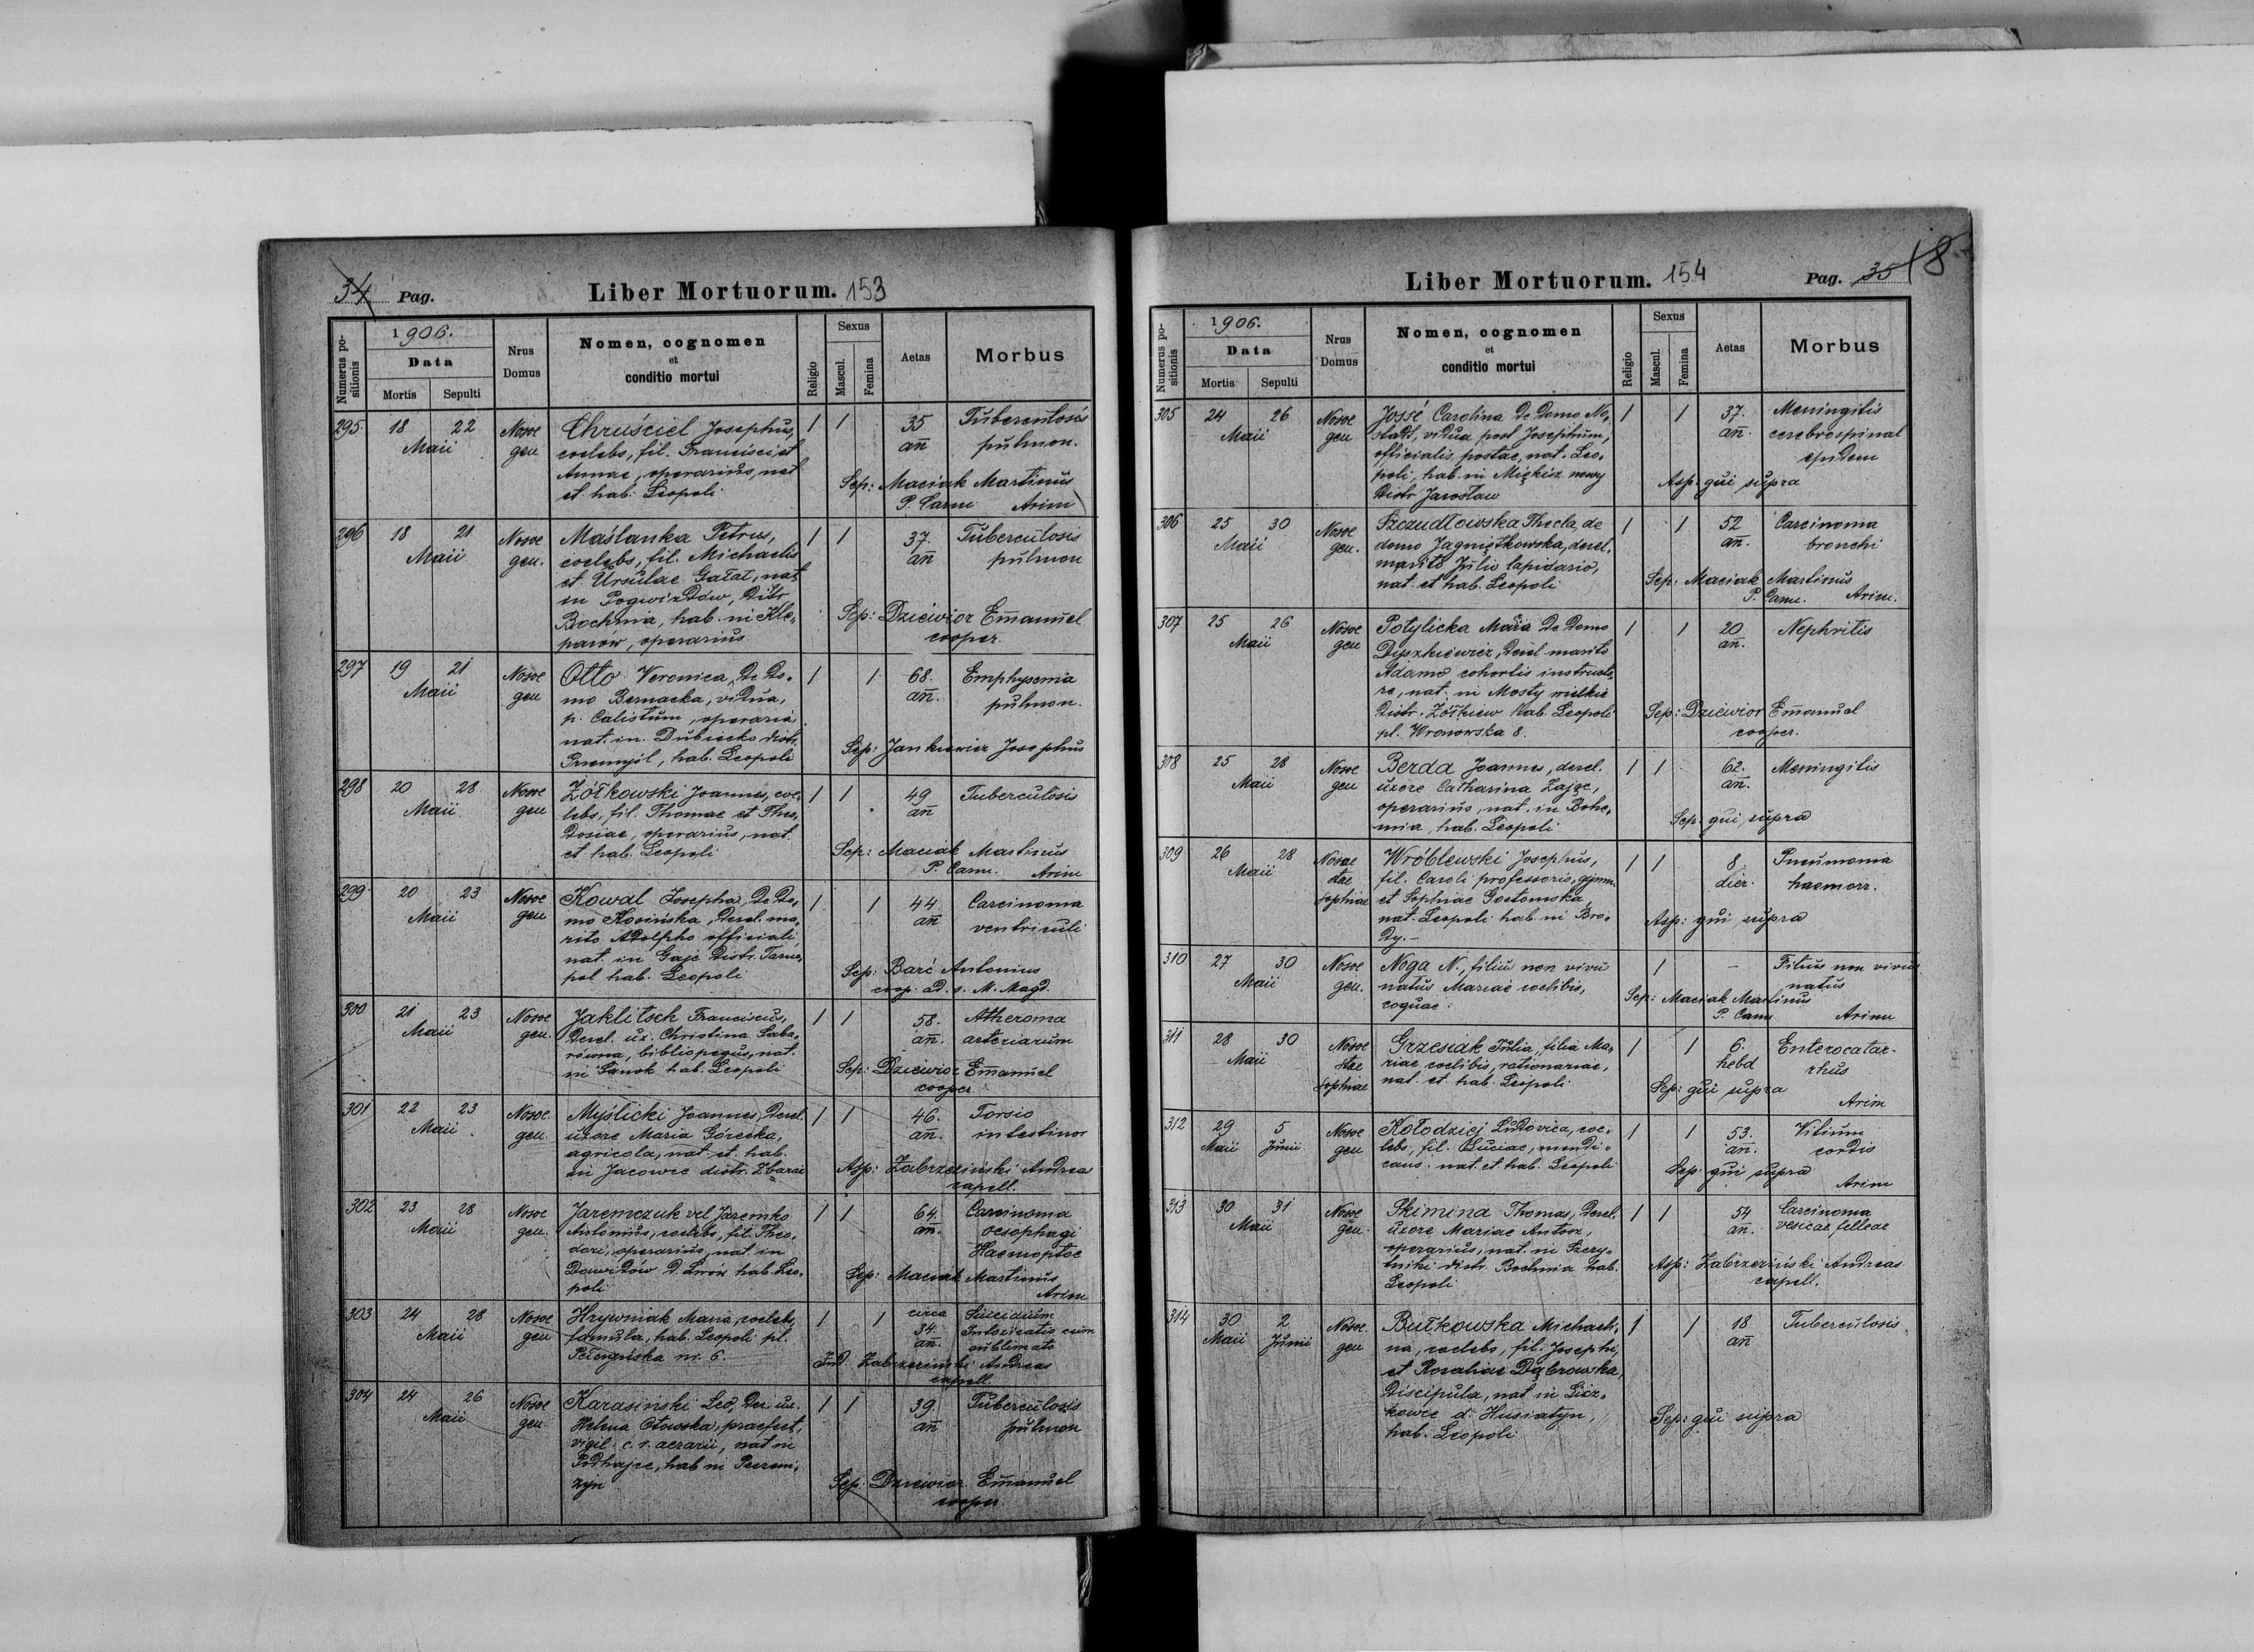 34 Pag.
Liber Mortuorum. 153
Numerus positionis
1906.
Data
Mortis
Sepulti
Nrus Domus
Nomen, cognomen
et
conditio mortui
Religio
Sexus
Mascul.
Femina
Aetas
Morbus
295 18 22 Nosoc Chruściel Josephus, 1 1 35 Tuberculosis
Maii gen coelebs, fil. Francisci et ann pulmon.
Annae, operarius, nat
et hab. Leopoli
Sep: Maciak Martinus
P. Carm Arim
296 18 21 Nosoc Maślanka Petrus, 1 1 37. Tuberculosis
Maii gen. coelebs, fil. Michaelis ann pulmon
et Ursulae Gałat, nat
in Pogwizdów, Distr
Bochnia, hab. in Kle-
parów, operarius
Sep: Dziewior Emanuel
cooper.
297 19 21 Nosoc Otto Veronica, De Do- 1 1 68. Emphysema
Maii gen mo Bernacka, vidua, ann. pulmon.
p. Calistum, operaria
nat. in Dubiecko distr.
Przemyśl, hab. Leopoli
Sep: Jankiewicz Josephus
298 20 28 Nosoc Żółkowski Joannes, coe- 1 1 49 Tuberculosis
Maii gen lebs, fil. Thomae et Theo- ann
dosiae, operarius, nat.
et hab. Leopoli
Sep: Maciak Martinus
P. Carm. Arim
299 20 23 Nosoc Kowal Josepha, De Do- 1 1 44 Carcinoma
Maii gen mo Kosińska, Derel. ma- ann ventriculi
rito Adolpho officiali
nat. in Gaje Distr. Tarno-
pol hab. Leopoli
Sep: Barć Antonius
coop. ad. s. M. Magd.
300 21 23 Nosoc Jaklitsch Franciscus, 1 1 58. Atheroma
Maii gen. Derel. ux. Christina Saba- ann. arteriarum
równa, bibliopegus, nat.
in Sanok hab. Leopoli
Sep: Dziewior Emanuel
cooper
301 22 23 Nosoc. Myślicki Joannes, Derel. 1 1 46. Torsio
Maii gen. uxore Maria Górecka, ann. intestinor
agricola, nat. et hab.
in Jacowce distr. Zbaraż
Asp: Zabrzeziński Andreas
capell.
302 23 28 Nosoc Jaremczuk vel Jaremko 1 1 64. Carcinoma
Maii gen. Antonius, coelebs, fil. Theo- ann. oesophagi
dori, operarius, nat. in Haemoptoe
Dawidów D. Lwów hab. Leo-
poli
Sep: Maciak Martinus
Arim
303 24 28 Nosoc Hrywniak Maria, coelebs, 1 1 circa Suicidium
Maii gen famula, hab. Leopoli pl. 34. Intoxicatio cum
Pełczyńska nr. 6. ann. sublimato
Ind. Zabrzeziński Andreas
capell.
304 24 26 Nosoc Karasiński Leo, Der. ux. 1 1 39. Tuberculosis
Maii gen. Helena Otowska, praefect, ann pulmon
vigil. c. r. aerarii, nat in
Podhajce, hab in Peczeni-
zyn
Sep: Dziewior Emanuel
cooper.
Liber Mortuorum. 154
Pag. 35 18
Numerus positionis
1906.
Data
Mortis
Sepulti
Nrus Domus
Nomen, cognomen
et
conditio mortui
Religio
Sexus
Mascul.
Femina
Aetas
Morbus
305 24 26 Nosoc Jossé Carolina De Domo No- 1 1 37. Meningitis
Maii gen stadt, vidua post Josephum, ann. cerebrospinal
officialis postae, nat. Leo- epidem
poli, hab. in Miękisz nowy
Distr Jarosław
Asp. qui supra
306 25 30 Nosoc Szczudłowska Thecla, de 1 1 52 Carcinoma
Maii gen. domo Jagniątkowska, derel. ann. bronchi
marito Julio lapidario,
nat. et hab. Leopoli
Sep: Maciak Martinus
P. Carm. Arim.
307 25 26 Nosoc Potylicka Maria De Domo 1 1 20 Nephritis
Maii gen Dyszkiewicz, Derel marito ann.
Adamo cohortis instructo-
re, nat. in Mosty wielkie
Distr. Żółkiew hab. Leopoli
pl. Wronowska 8.
Sep: Dziewior Emanuel
cooper.
308 25 28 Nosoc Berda Joannes, derel. 1 1 62. Meningitis
Maii gen uxore Catharina Zając, ann.
operarius, nat. in Bohe-
mia, hab. Leopoli
Sep. qui supra
309 26 28 Nosoc Wróblewski Josephus, 1 1 8 Pneumonia
Maii stae fil. Caroli professoris, gymn. dier. haemorr.
Sophiae et Sophiae Gostomska,
nat. Leopoli hab. in Bro-
dy.-
Asp: qui supra
310 27 30 Nosoc. Noga N., filiu non vivu 1 - Filius non vivus
Maii gen. natus Mariae coelibis, natus
coquae.
Sep: Maciak Martinus
P. Carm. Arim
311 28 30 Nosoc Grzesiak Julia, filia Ma- 1 1 6. Enterocatar-
Maii stae riae coelibis, rationariae, hebd rhus
Sophiae nat. et hab. Leopoli
Sep: qui supra
Arim
312 29 5 Nosoc Kołodziej Ludovica, coe- 1 1 53. Vitium
Maii Junii gen lebs, fil. Luciae, mendi- ann. cordis
cans. nat. et hab. Leopoli
Sep: qui supra
Arim
313 30 31 Nosoc Skimina Thomas, Derel. 1 1 54 Carcinoma
Maii gen. uxore Mariae Antosz, ann. vesicae felleae
operarius, nat. in Szczy-
tniki distr. Bochnia hab.
Leopoli
Asp: Zabrzeziński Andreas.
capell.
314 30 2 Nosoc. Butkowska Michaeli- 1 1 18 Tuberculosis
Maii Junii gen na, coelebs, fil. Josephi, ann
et Rosaliae Dąbrowska,
Discipula, nat in Licz-
kowce d. Husiatyn,
hab. Leopoli
Sep: qui supra